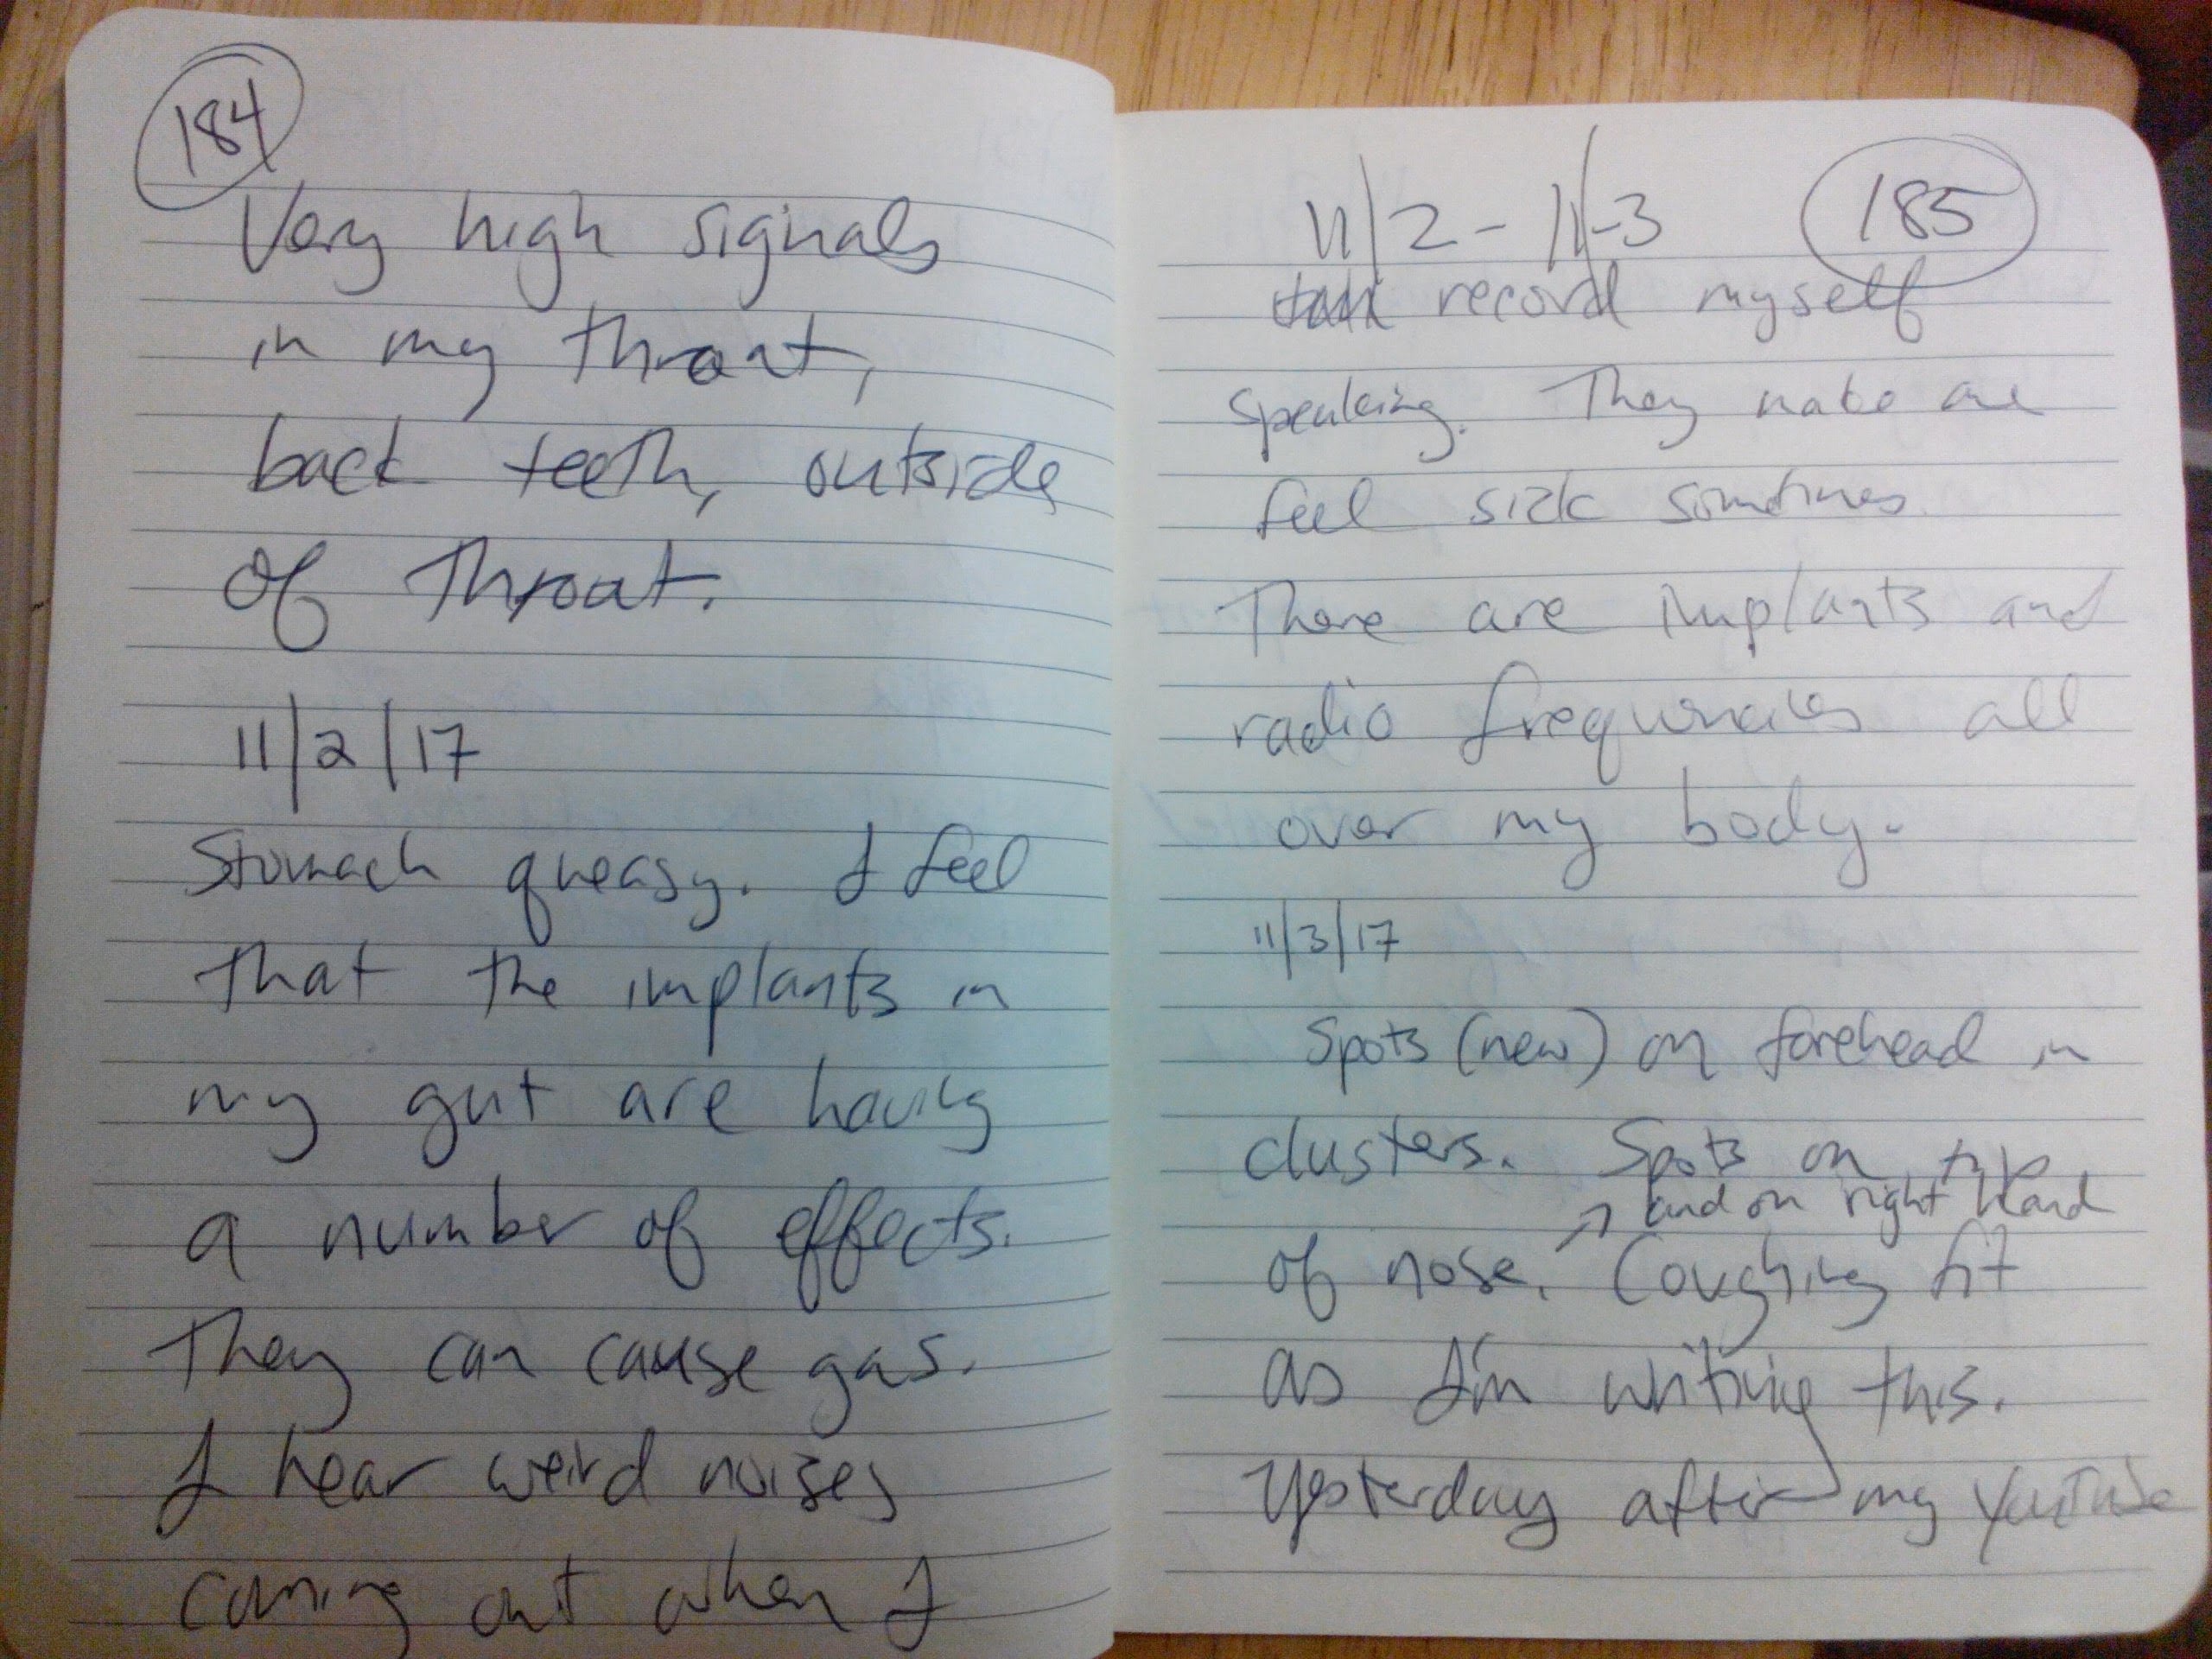 184
Very high signals
in my throat,
back teeth, outside
of throat.
11/2/17
Stomach queasy. I feel
that the implants in
my gut are having
a number of effects.
They can cause gas.
I hear weird noises
coming out when I
11/2 - 11/3
185
record myself
speaking. They make me
feel sick sometimes.
There are implants and
radio frequencies all
over my body.
11/3/17
Spots (new) on forehead in
clusters. Spots on tip
↗ and on right hand
of nose. Coughing fit
as I'm writing this.
Yesterday after my YouTube